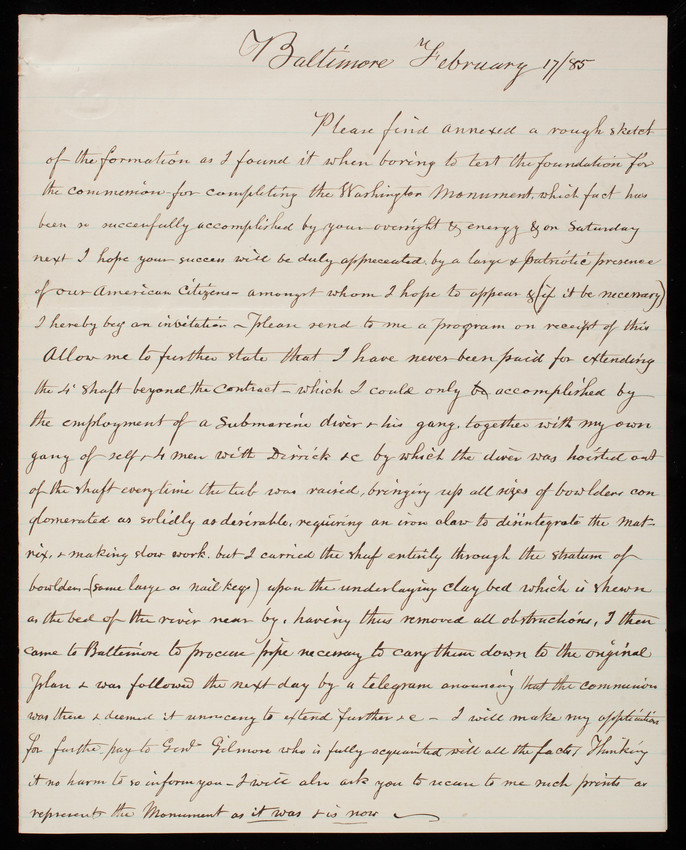 Baltimore February 17/85
Please find annexed a rough sketch
of the formation as I found it when boring to test the foundation for
the commession for completing the Washington Monument, which fact has
been so succesfully accomplished by your oversight & energy & on Saturday
next I hope your success will be duly appreceated by a large & patriotic presence
of our American Citizens - amongst whom I hope to appear & (if it be necessary)
I hereby beg an invitation - Please send to me a program on receipt of this
Allow me to further state that I have never been paid for extending
the 4' shaft beyond the Contract - which I could only accomplished by
the employment of a Submarine diver & his gang, together with my own
gang of self & 4 men with Dirrick &c by which the diver was hoisted out
of the shaft everytime the tub was raised, bringing up all sizes of bowlders con
glomerated as solidly as desirable, requiring an iron claw to disintegrate the mat-
rix, & making slow work, but I carried the shaf entirely through the stratum of
bowlders - (some large as nail kegs) upon the underlaying clay bed which is shewn
as the bed of the river near by, having thus removed all obstructions, I then
came to Baltimore to procure pipe necessary to cary them down to the original
Plan & was followed the next day by a telegram anouncing that the commission
was there & deemed it unnecesary to extend further &c - I will make my application
for further pay to Genl Gilmore who is fully acquainted with all the facts, Thinking
it no harm to so inform you - I will also ask you to secure to me such prints as
represents the Monument as it was & is now